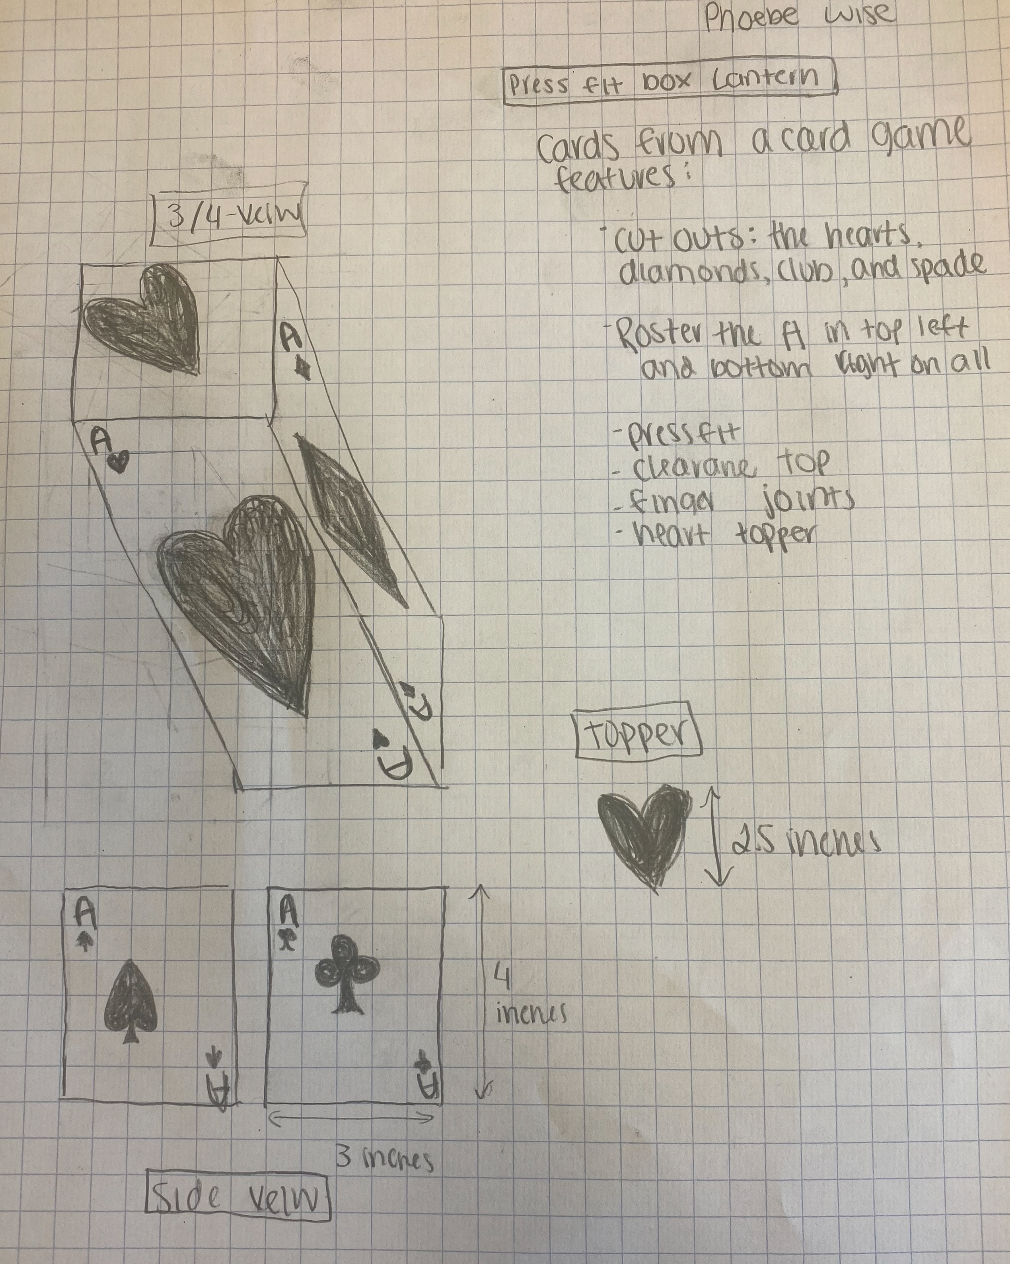 Phoebe Wise
Press fit box Lantern
Cards from a card game
features:
- cut outs: the hearts,
diamonds, club, and spade
- Roster the A in top left
and bottom right on all
- press fit
- clearane top
- finger joints
- heart topper
3/4-veiw
A
A
A
A
topper
2.5 inches
A
A
A
A
4
inches
3 inches
Side veiw